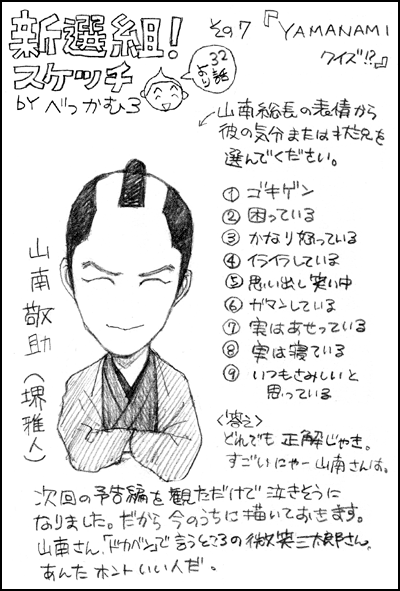 新選組!
スケッチ
BY べっかむ3
32話より
その7 『YAMANAMI
クイズ!?』
山南総長の表情から
彼の気分または状況を
選んでください。
① ゴキゲン
② 困っている
③ かなり怒っている
④ イライラしている
⑤ 思い出し笑い中
⑥ ガマンしている
⑦ 実はあせっている
⑧ 実は寝ている
⑨ いつもさみしいと
思っている
<答え>
どれでも正解じゃき。
すごいにゃー山南さんは。
山南敬助(堺雅人)
次回の予告編を観ただけで泣きそうに
なりました。だから今のうちに描いておきます。
山南さん、「ドカベン」で言うところの微笑三太郎さん。
あんたホントいい人だ。